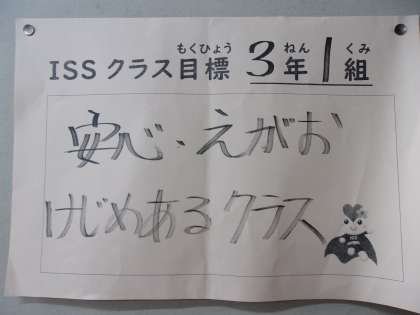 ISS クラス目標 3年1組
もくひょう ねん くみ
安心、えがお
けじめあるクラス